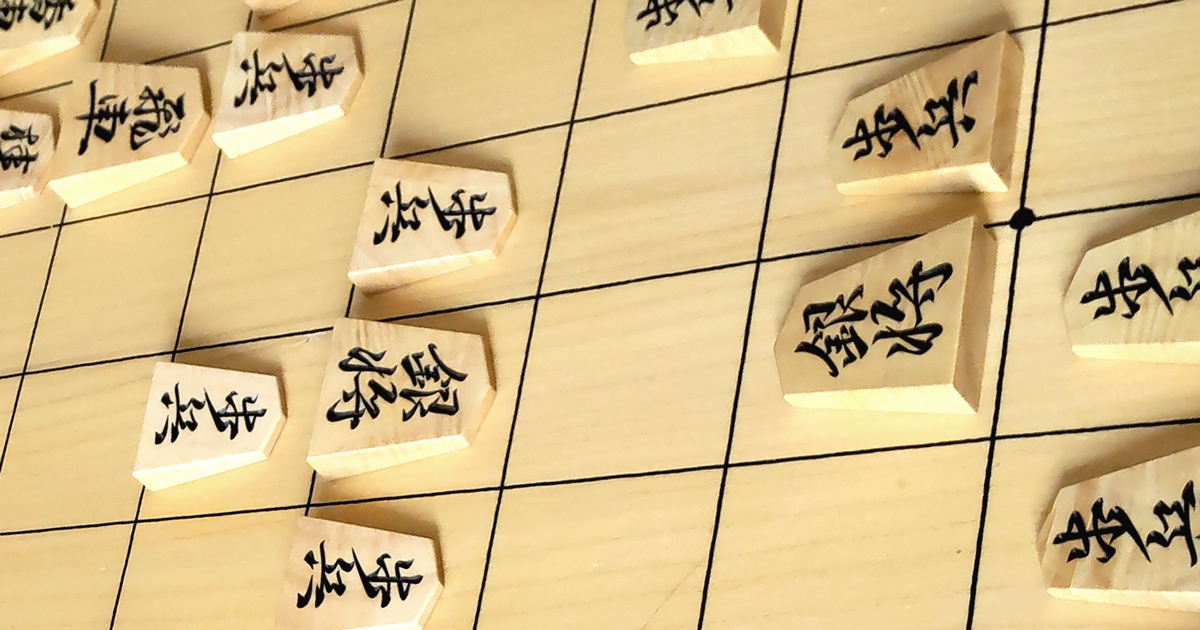 飛車
歩兵
歩兵
歩兵
銀将
歩兵
歩兵
銀将
歩兵
歩兵